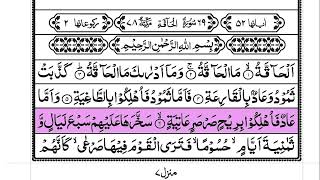 اٰیاتها ۵۲ ۶۹ سُوْرَةُ الْحَآقَّةِ مَكِّیَّةٌ ۷۸ رکوعاتها ۲
بِسْمِ اللّٰهِ الرَّحْمٰنِ الرَّحِیْمِ
اَلْحَآقَّةُ ۙ۱ مَا الْحَآقَّةُ ۚ۲ وَ مَاۤ اَدْرٰىكَ مَا الْحَآقَّةُ ؕ۳ كَذَّبَتْ
ثَمُوْدُ وَ عَادٌۢ بِالْقَارِعَةِ ۴ فَاَمَّا ثَمُوْدُ فَاُهْلِكُوْا بِالطَّاغِیَةِ ۵ وَ اَمَّا
عَادٌ فَاُهْلِكُوْا بِرِیْحٍ صَرْصَرٍ عَاتِیَةٍ ۙ۶ سَخَّرَهَا عَلَیْهِمْ سَبْعَ لَیَالٍ وَّ
ثَمٰنِیَةَ اَیَّامٍ ۙ حُسُوْمًا ۙ فَتَرَى الْقَوْمَ فِیْهَا صَرْعٰى ۙ كَاَنَّهُمْ
منزل ۷